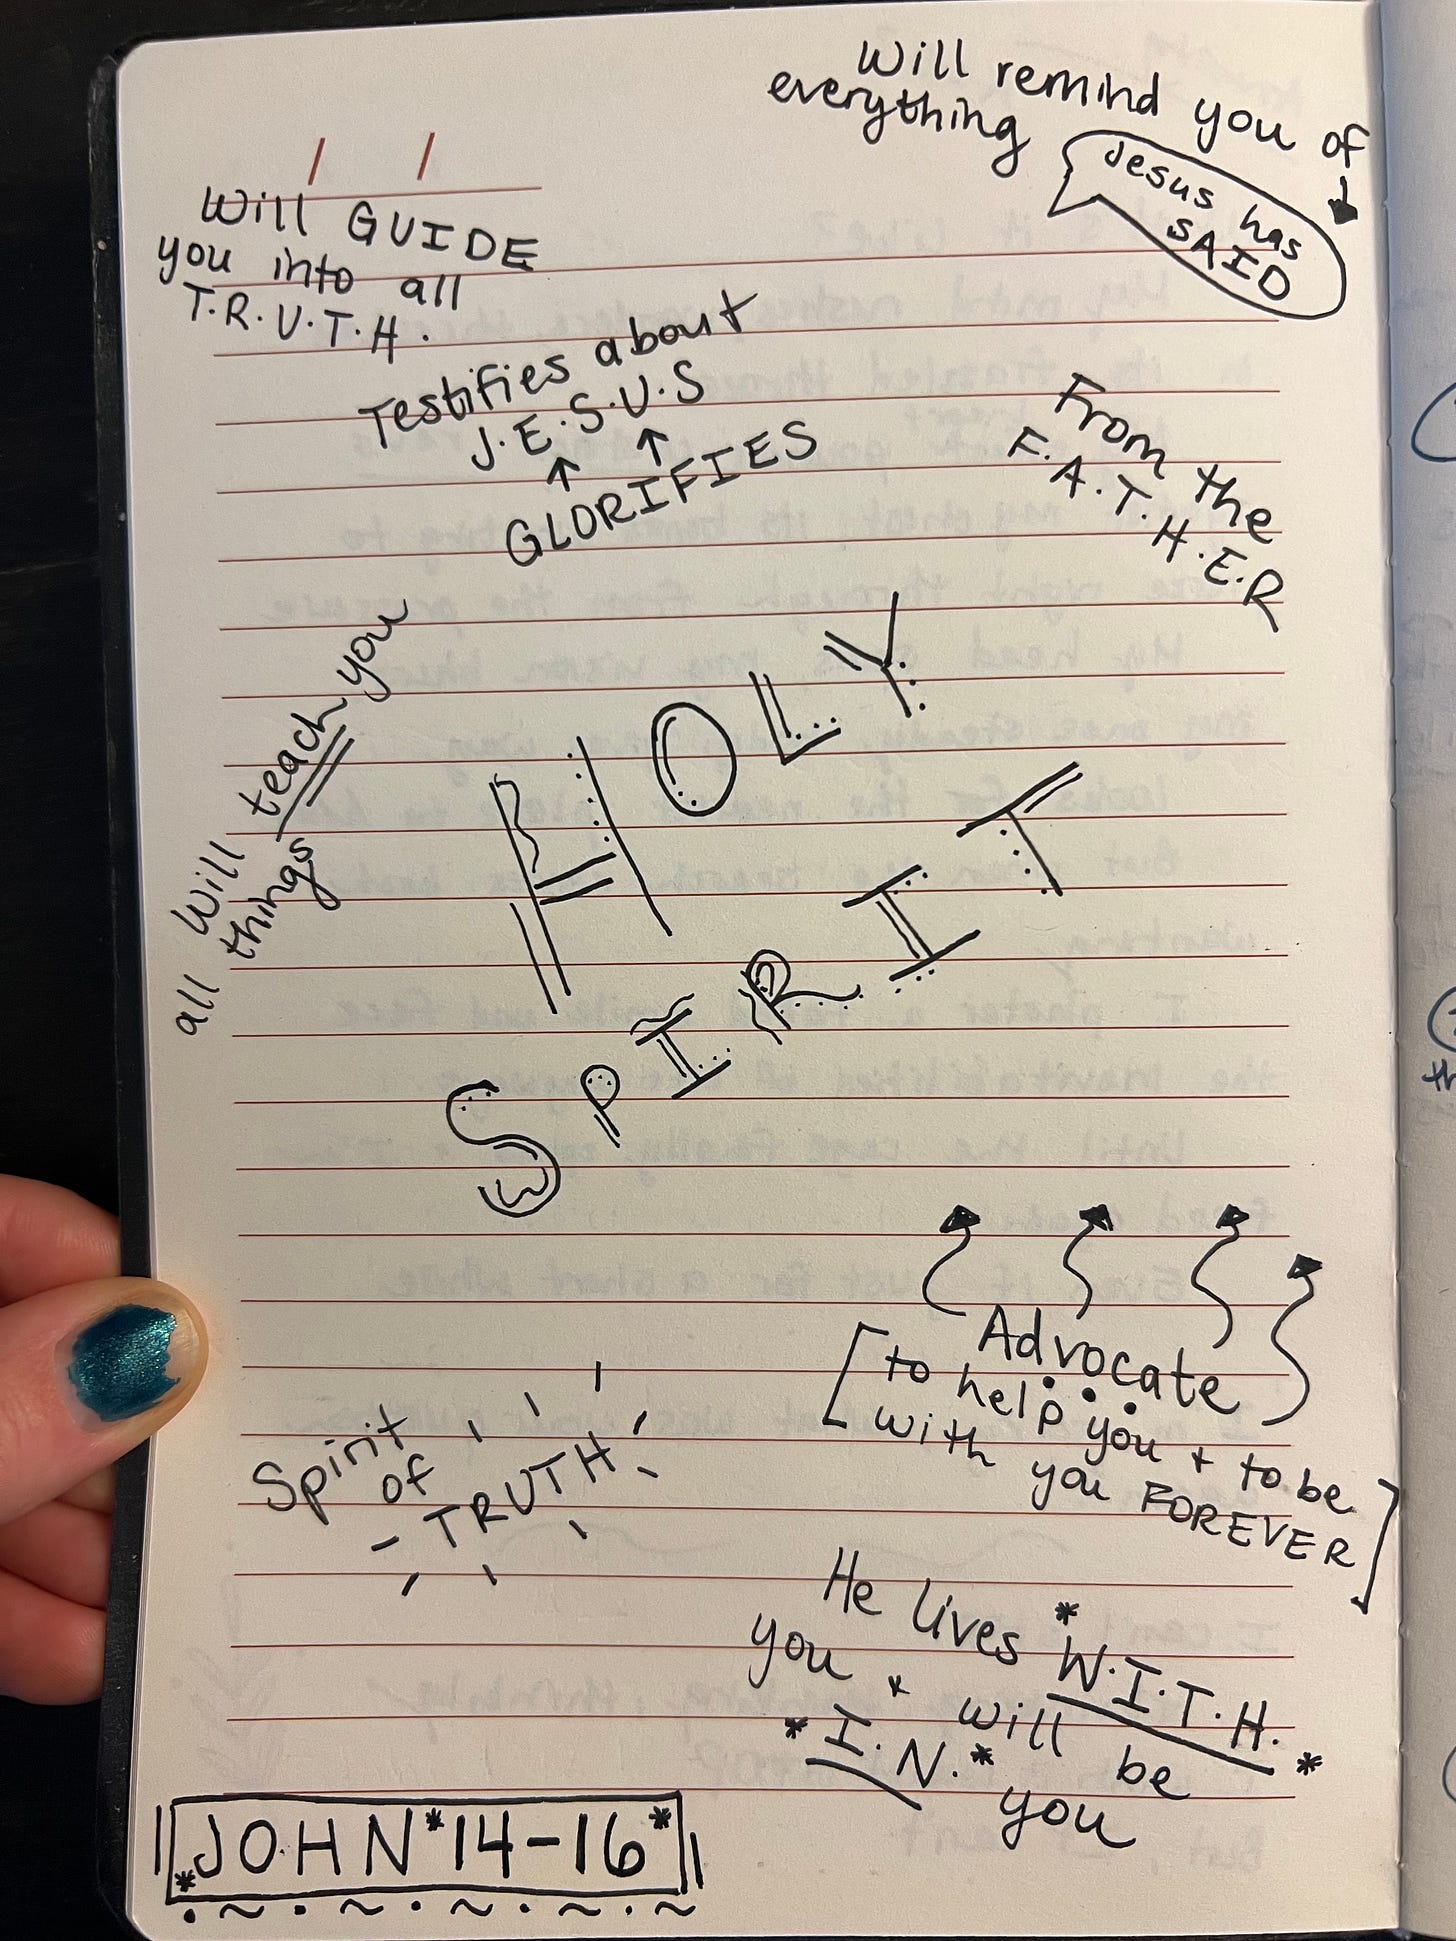 Will remind you of
everything
Jesus has
SAID
/ /
Will GUIDE
you into all
T.R.U.T.H.
Testifies about
J.E.S.U.S
GLORIFIES
From the
F.A.T.H.E.R
Will teach you
all things
HOLY
SPIRIT
Advocate
[to help you + to be
with you FOREVER]
Spirit
of
TRUTH
He lives *W.I.T.H.*
you + will be
*I.N.* you
*JOHN*14-16*